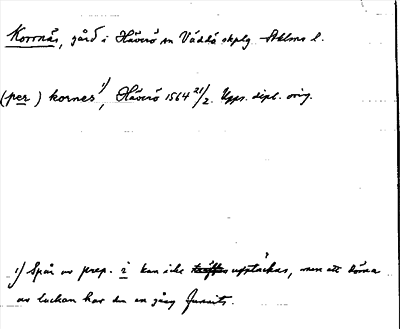 Korrnäs, gård i Häverö sn Väddö skplg Sthlms l.
(per) kornes 1), Häverö 1564 21/2. Upps. dipl. orig.
1) Spår av prep. i kan icke upptäckas, men att döma
av luckan har den en gång funnits.